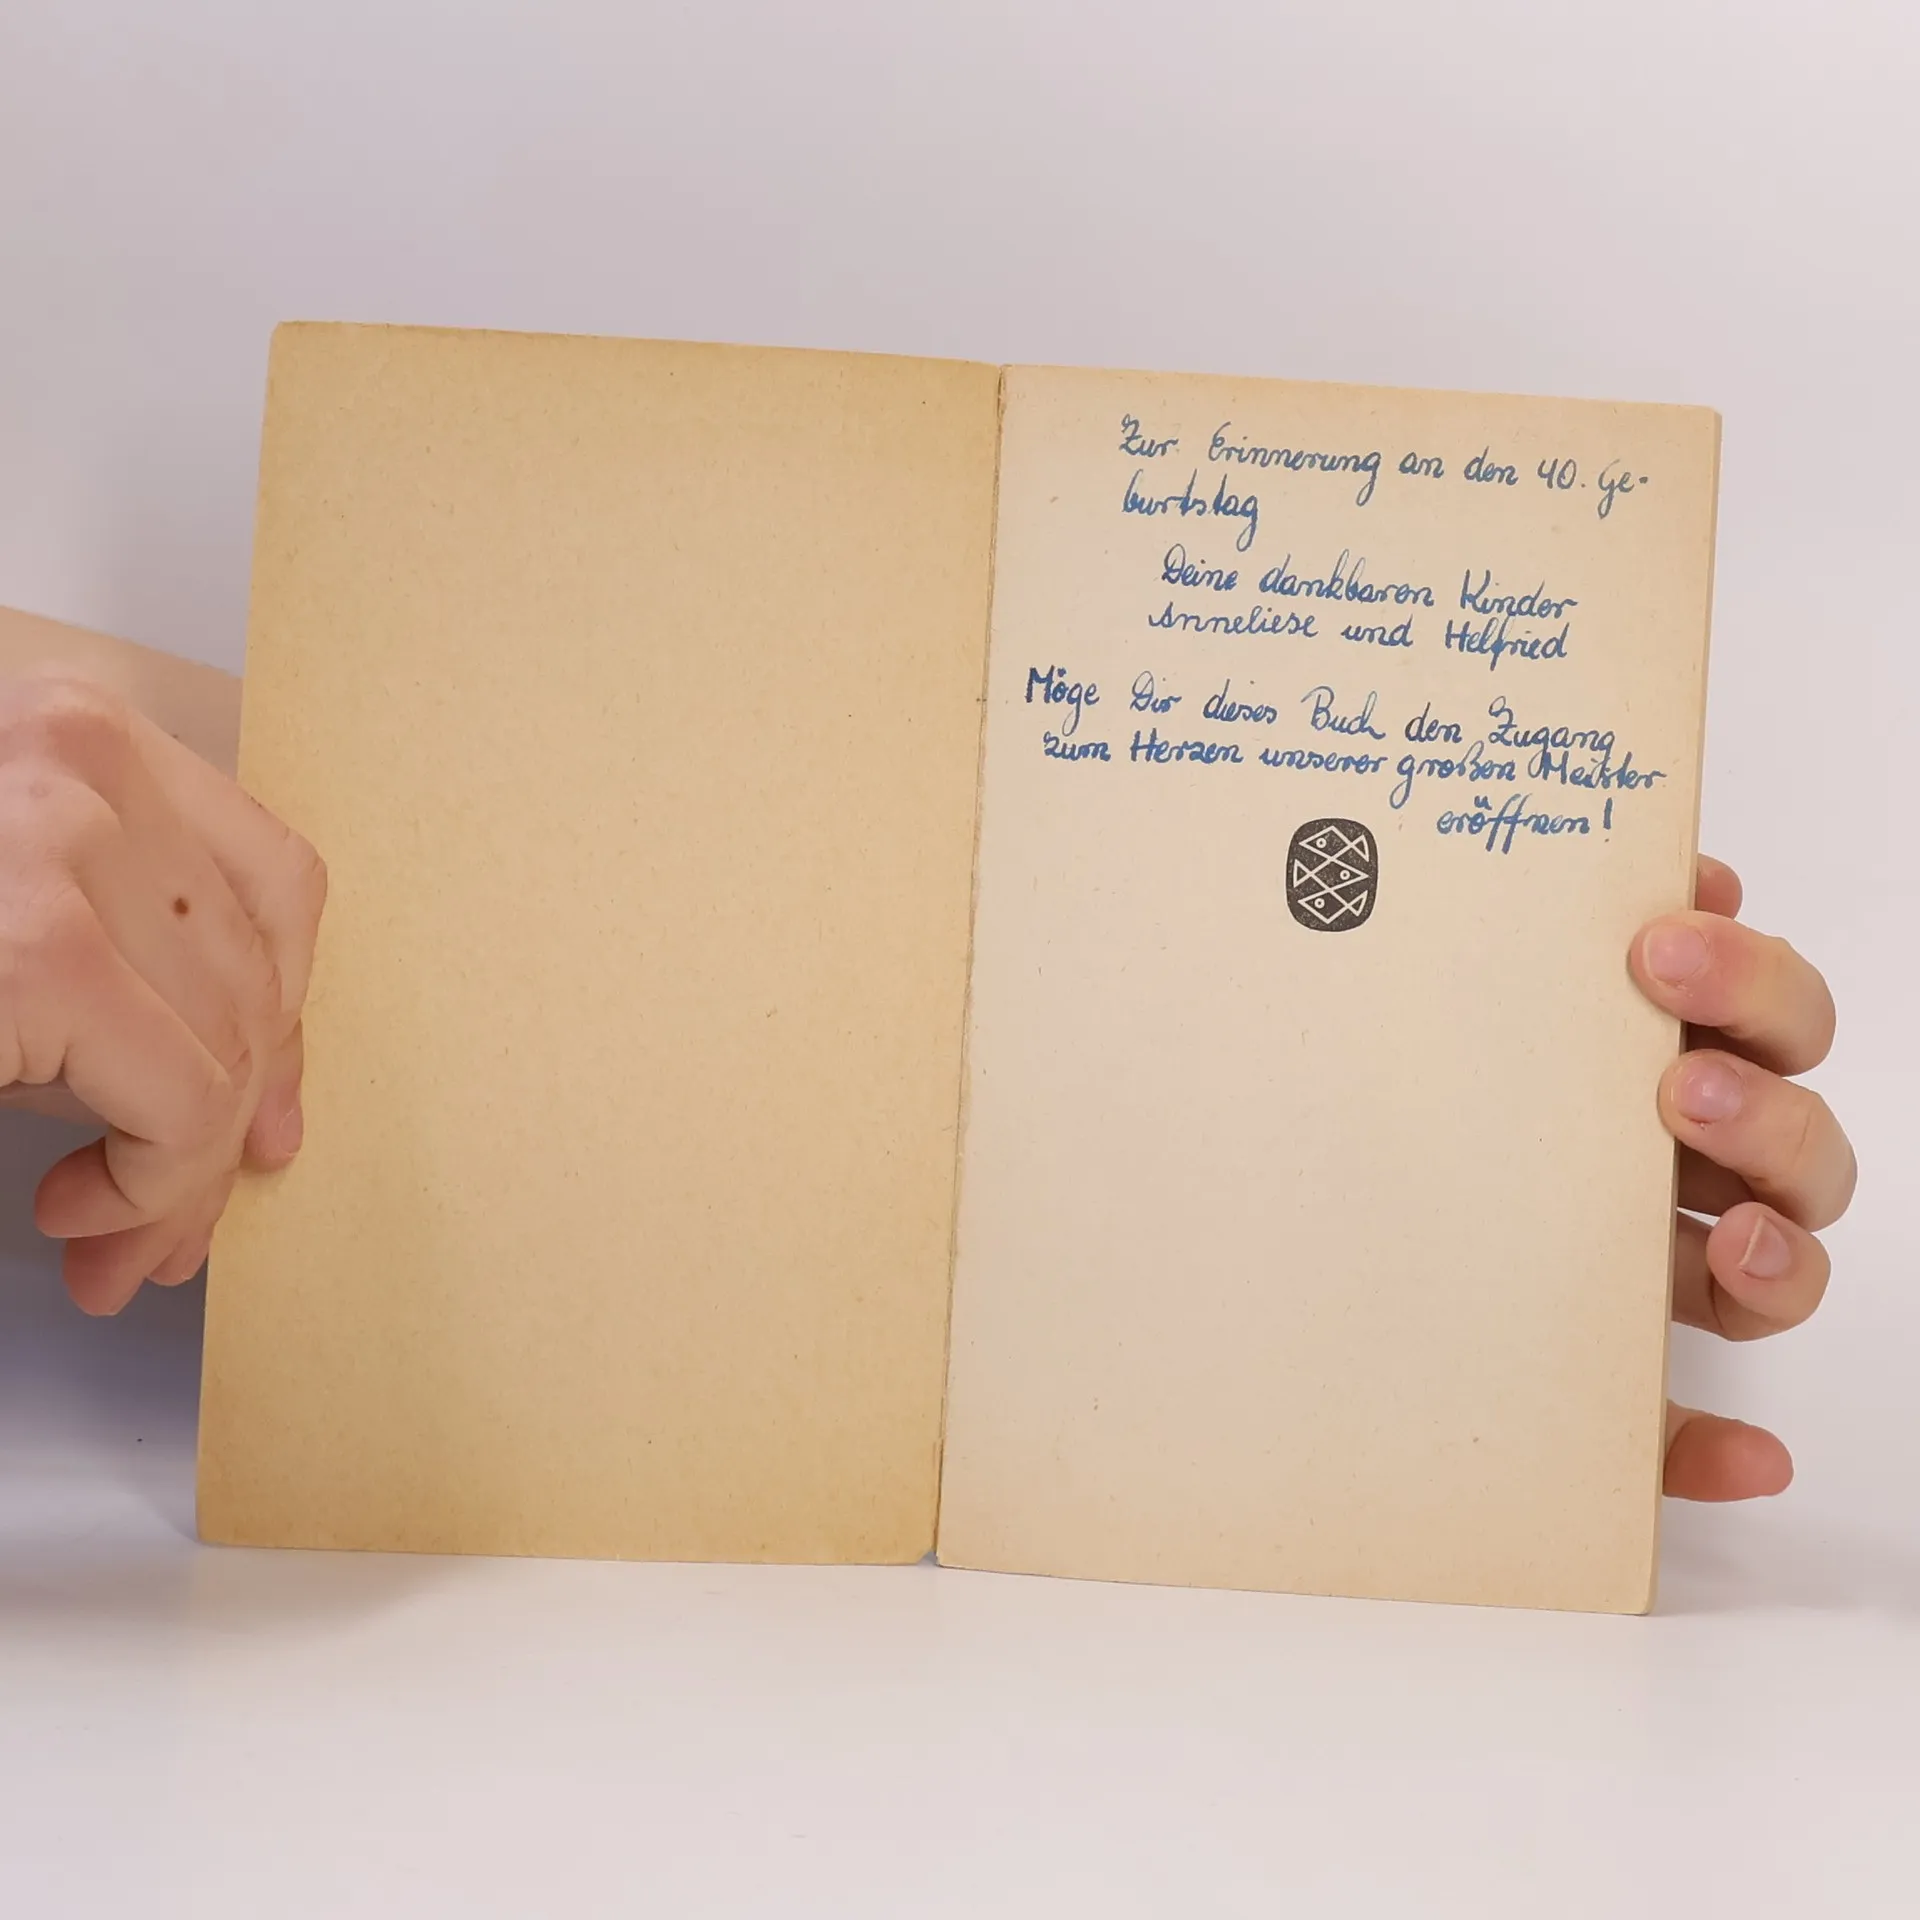 Zur Erinnerung an den 40. Ge-
burtstag
Deine dankbaren Kinder
Anneliese und Helfried
Möge Dir dieses Buch den Zugang
zum Herzen unserer großen Meister
eröffnen!